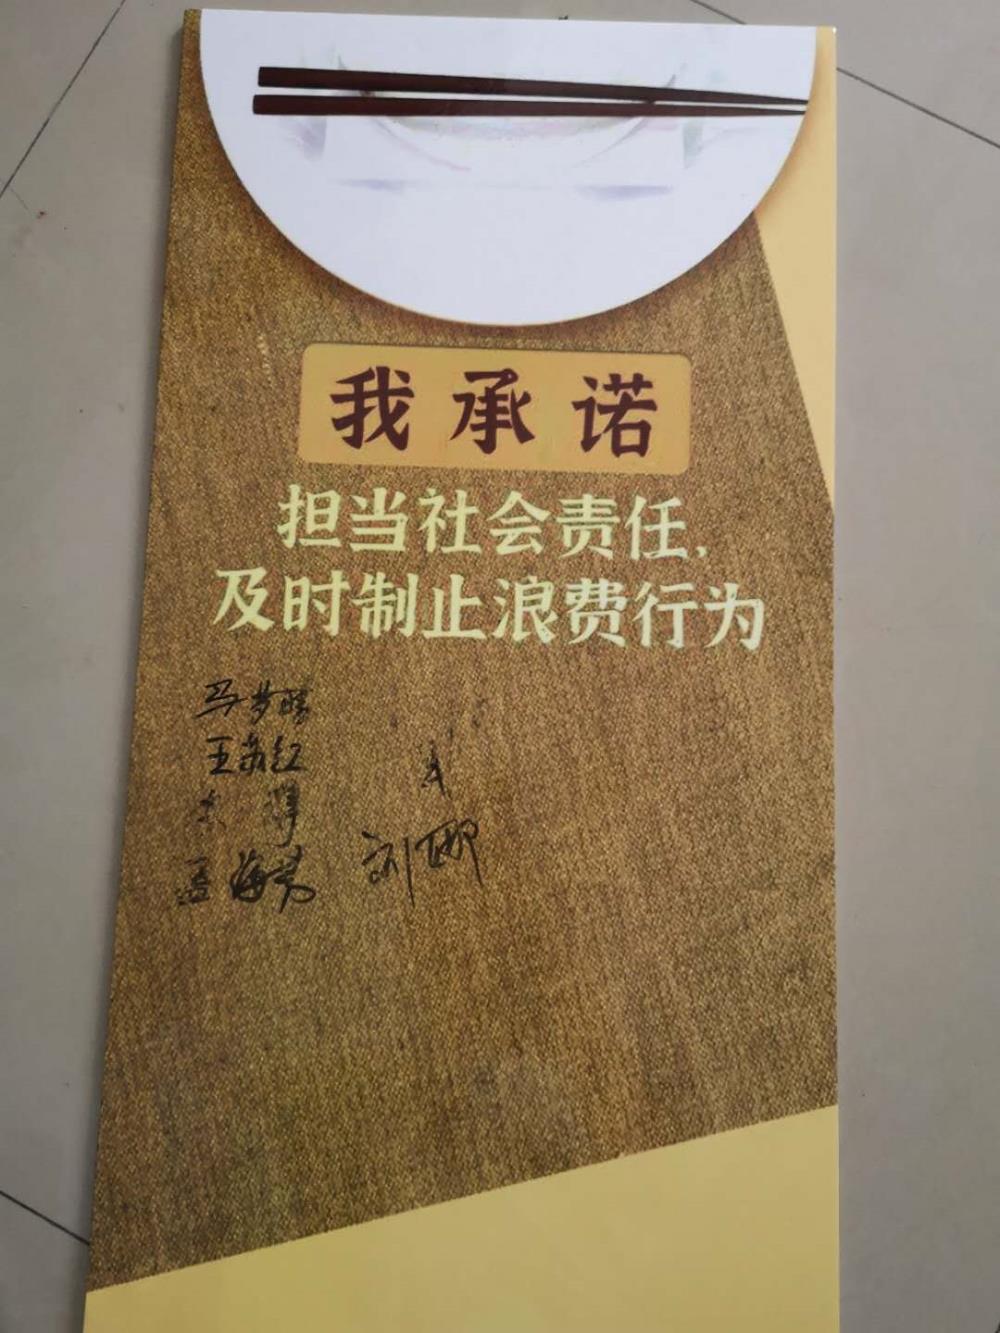 我承诺
担当社会责任,
及时制止浪费行为
马梦醒
王荣红
孟海秀
刘娜